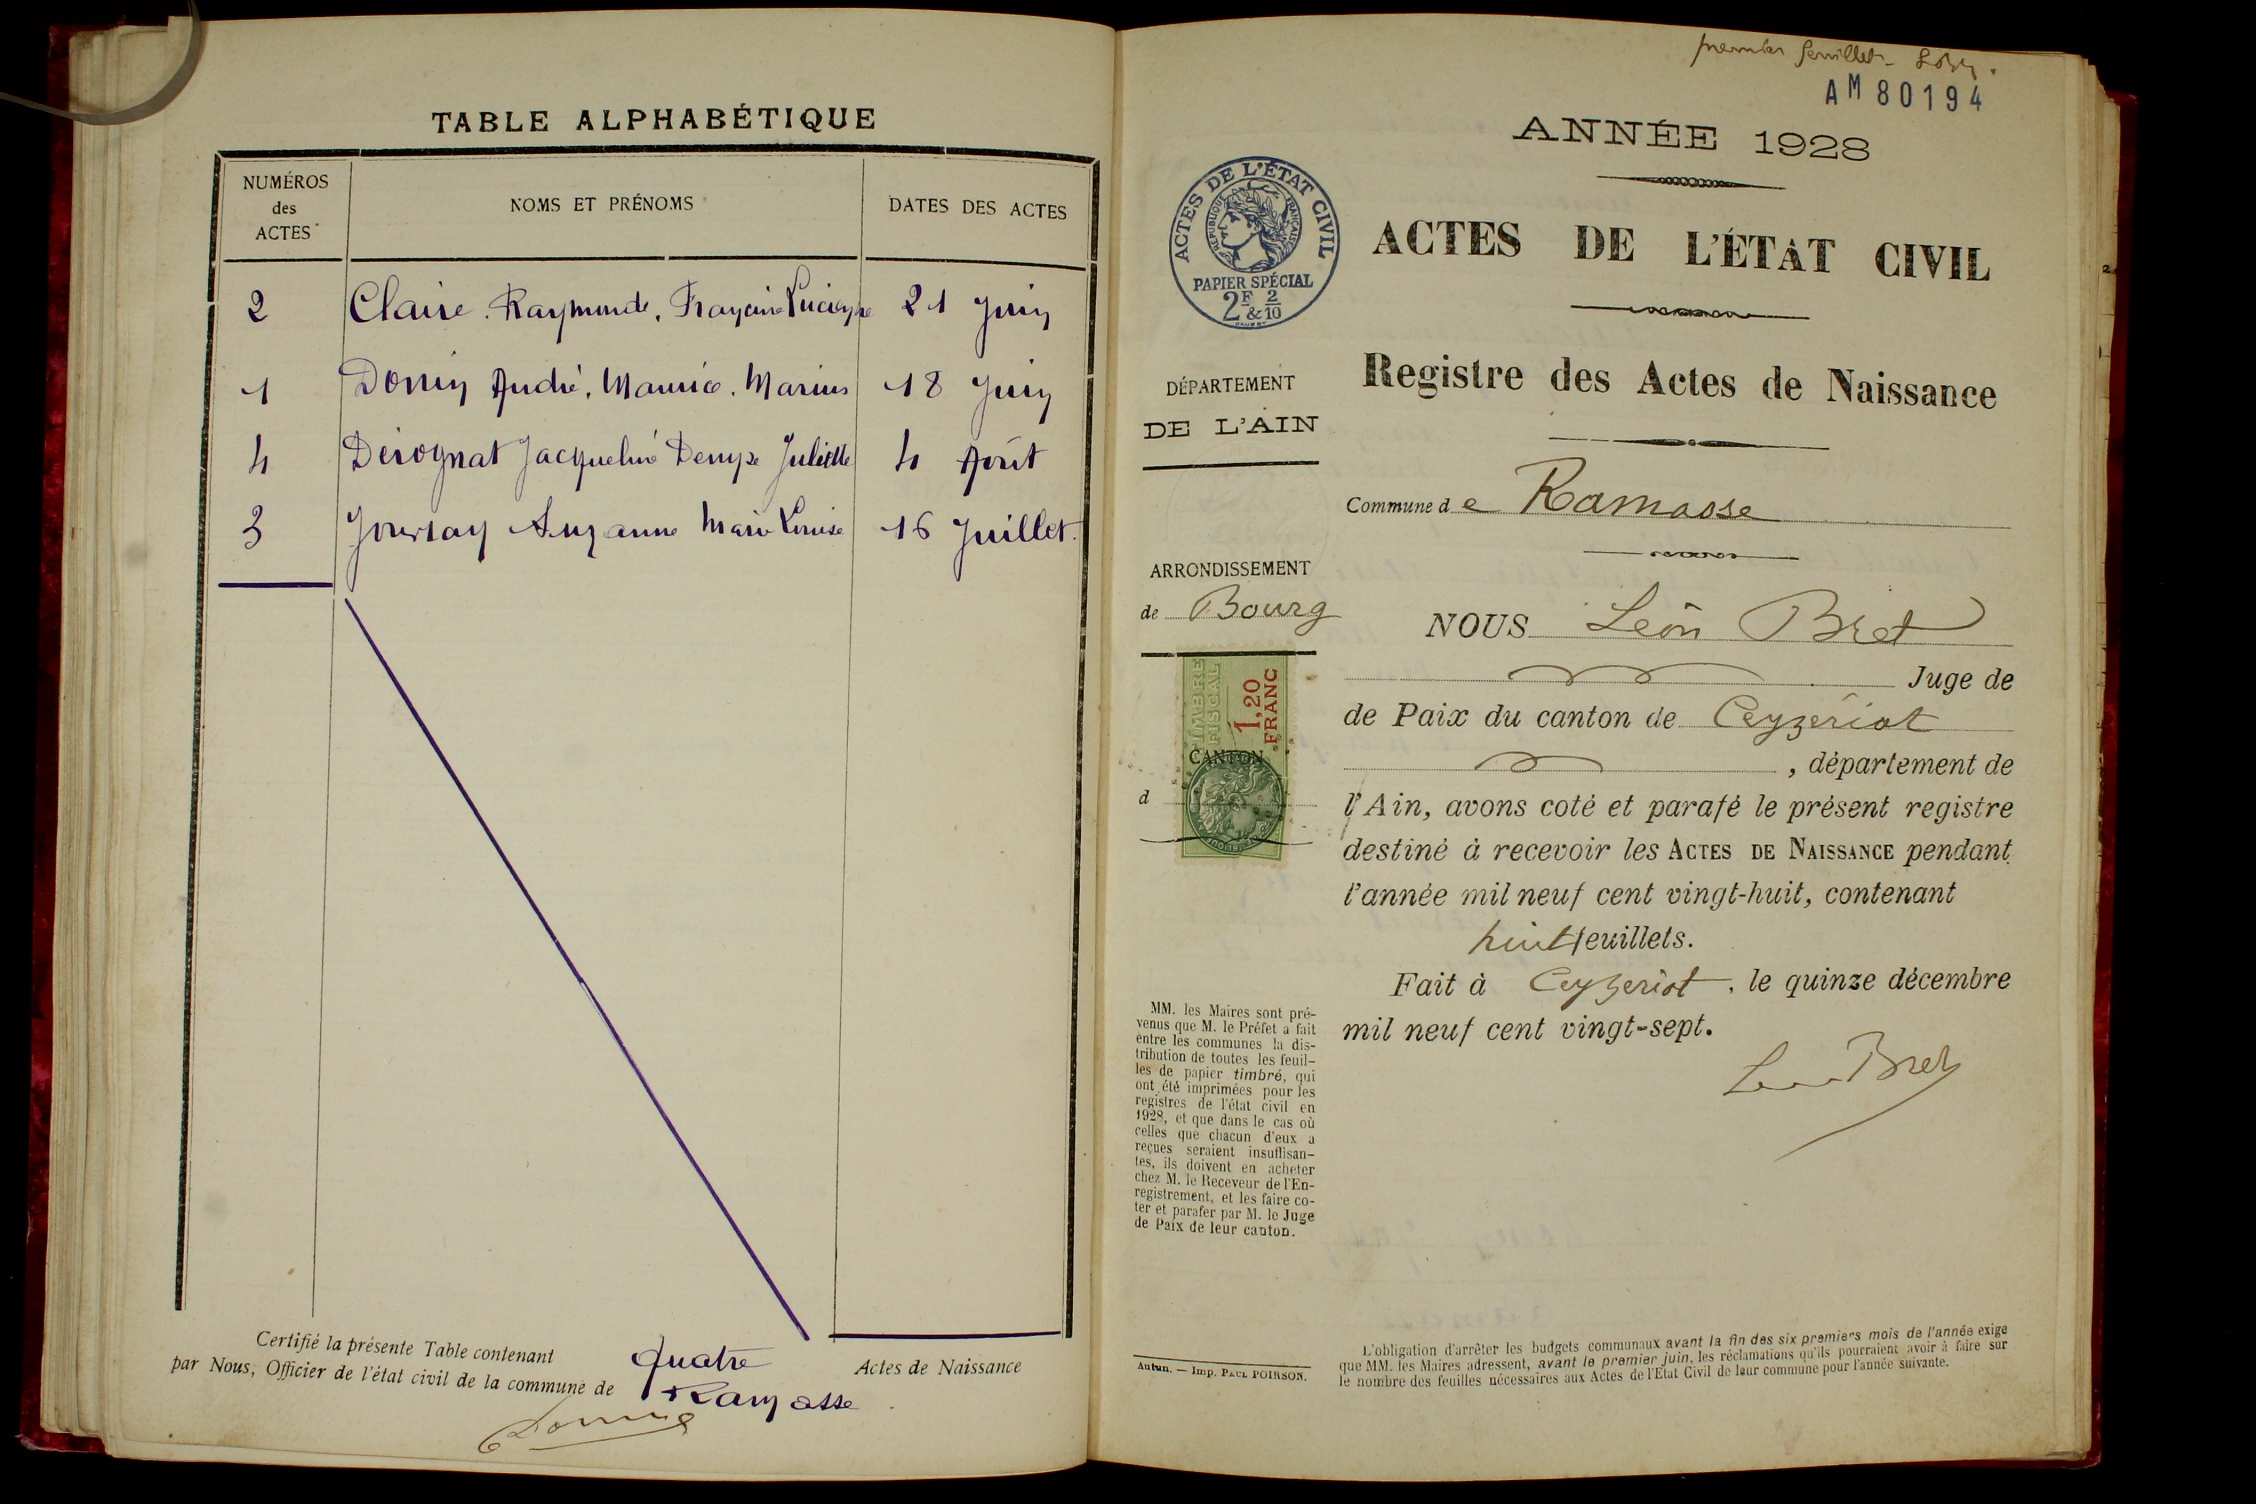 TABLE ALPHABÉTIQUE
NUMÉROS
des
ACTES
NOMS ET PRÉNOMS
DATES DES ACTES
2 Claire. Raymonde, Françoise Lucienne 21 Juin
1 Donin André. Maurice. Marius 18 Juin
4 Dérognat Jacqueline Denyse Juliette 4 Août
3 Suzanne Marie Louise 16 Juillet.
Certifié la présente Table contenant quatre Actes de Naissance
par Nous, Officier de l'état civil de la commune de Ramasse
premier feuillet
AM 80194
ANNÉE 1928
ACTES DE L'ÉTAT CIVIL
RÉPUBLIQUE FRANÇAISE
PAPIER SPÉCIAL
2F & 2/10
ACTES DE L'ÉTAT CIVIL
Registre des Actes de Naissance
DÉPARTEMENT
DE L'AIN
Commune de Ramasse
ARRONDISSEMENT
de Bourg
TIMBRE
FISCAL
1,20
FRANC
CANTON
d
NOUS Léon Bret
Juge de
de Paix du canton de Ceyzériat
, département de
l'Ain, avons coté et parafé le présent registre
destiné à recevoir les ACTES DE NAISSANCE pendant
l'année mil neuf cent vingt-huit, contenant
huit feuillets.
Fait à Ceyzériat, le quinze décembre
mil neuf cent vingt-sept.
Léon Bret
MM. les Maires sont pré-
venus que M. le Préfet a fait
entre les communes la dis-
tribution de toutes les feuil-
les de papier timbré, qui
ont été imprimées pour les
registres de l'état civil en
1928, et que dans le cas où
celles que chacun d'eux a
reçues seraient insuffisan-
tes, ils doivent en acheter
chez M. le Receveur de l'En-
registrement, et les faire co-
ter et parafer par M. le Juge
de Paix de leur canton.
Autun. — Imp. PAUL POIRSON.
L'obligation d'arrêter les budgets communaux avant la fin des six premiers mois de l'année exige
que MM. les Maires adressent, avant le premier juin, les réclamations qu'ils pourraient avoir à faire sur
le nombre des feuilles nécessaires aux Actes de l'Etat Civil de leur commune pour l'année suivante.